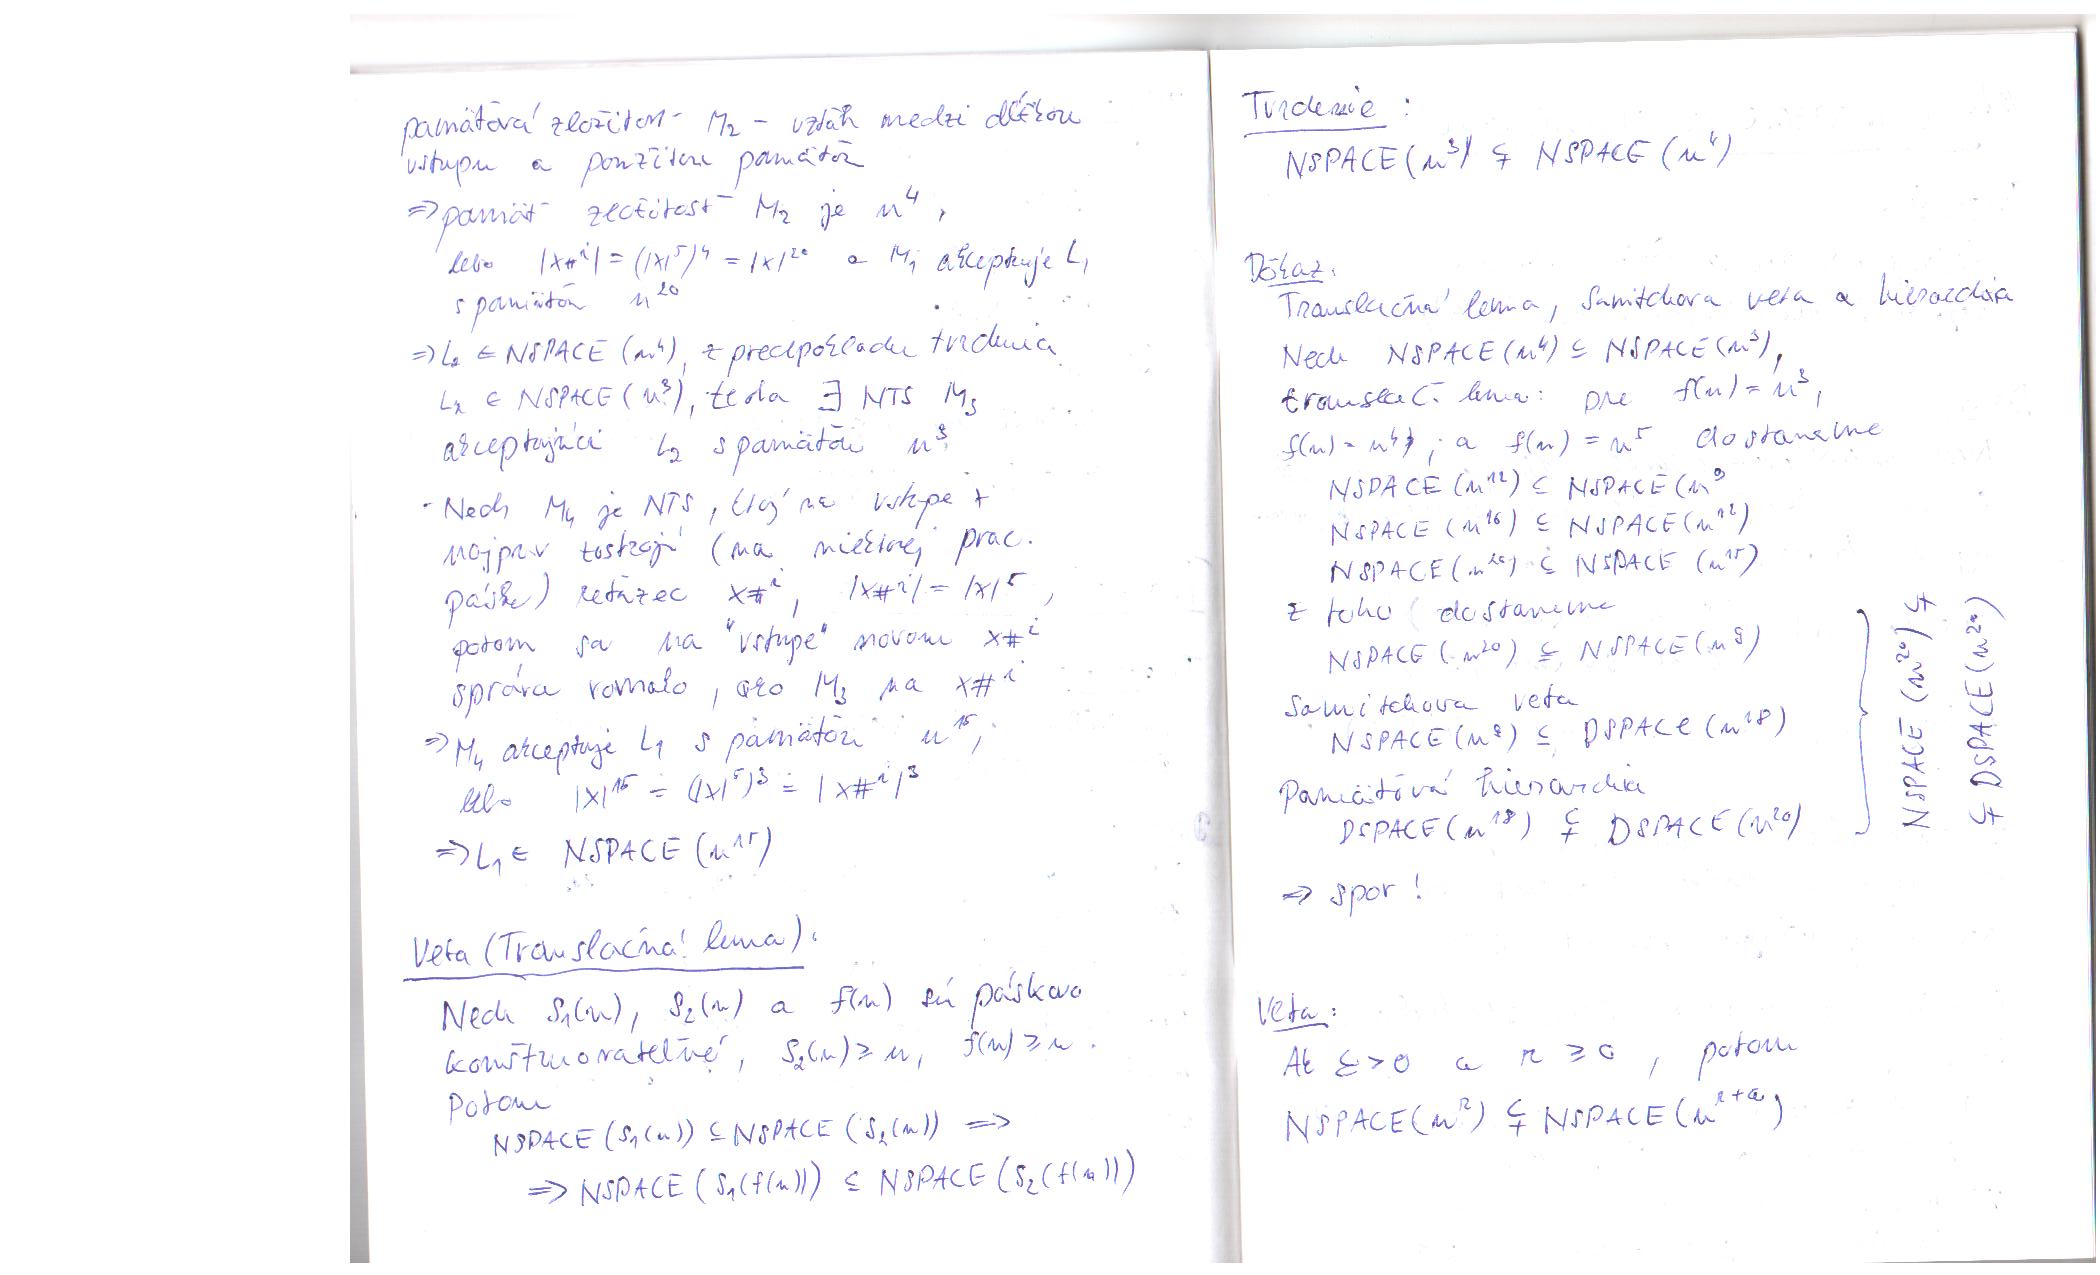 pamäťová zložitosť M₂ - vzťah medzi dĺžkou
vstupu a použitou pamäťou
⇒ pamäť zložitosť M₂ je n⁴,
lebo |x#ⁱ| = (|x|⁵)⁴ = |x|²⁰ a M₁ akceptuje L₁
s pamäťou n²⁰
⇒ L₂ ∈ NSPACE (n⁴), z predpokladu tvrdenia
L₂ ∈ NSPACE (n³), teda ∃ NTS M₃
akceptujúci L₂ s pamäťou n³
- Nech M₄ je NTS, ktorý na vstupe x
najprv zostrojí (na niektorej prac.
páske) reťazec x#ⁱ, |x#ⁱ| = |x|⁵,
potom sa na "vstupe" novom x#ⁱ
správa rovnako, ako M₃ na x#ⁱ
⇒ M₄ akceptuje L₁ s pamäťou n¹⁵,
lebo |x|¹⁵ = (|x|⁵)³ = |x#ⁱ|³
⇒ L₁ ∈ NSPACE (n¹⁵)
Veta (Translačná lema):
Nech S₁(n), S₂(n) a f(n) sú páskovo
konštruovateľné, S₂(n) ≥ n, f(n) ≥ n.
Potom
NSPACE (S₁(n)) ⊆ NSPACE (S₂(n)) ⇒
⇒ NSPACE (S₁(f(n))) ⊆ NSPACE (S₂(f(n)))
Tvrdenie :
NSPACE (n³) ⊊ NSPACE (n⁴)
Dôkaz:
Translačná lema, Savitchova veta a hierarchia
Nech NSPACE (n⁴) ⊆ NSPACE (n³),
translač. lema: pre f(n) = n³,
f(n) = n⁴, a f(n) = n⁵ dostaneme
NSPACE (n¹²) ⊆ NSPACE (n⁹
NSPACE (n¹⁶) ⊆ NSPACE (n¹²)
NSPACE (n²⁰) ⊆ NSPACE (n¹⁵)
z toho dostaneme
NSPACE (n²⁰) ⊆ NSPACE (n⁹)
Savitchova veta
NSPACE (n⁹) ⊆ DSPACE (n¹⁸)
Pamäťová hierarchia
DSPACE (n¹⁸) ⊊ DSPACE (n²⁰)
NSPACE (n²⁰) ⊊
⊊ DSPACE (n²⁰)
⇒ spor !
Veta:
Ak ε > 0 a r ≥ 0, potom
NSPACE (nʳ) ⊊ NSPACE (nʳ⁺ᵋ)